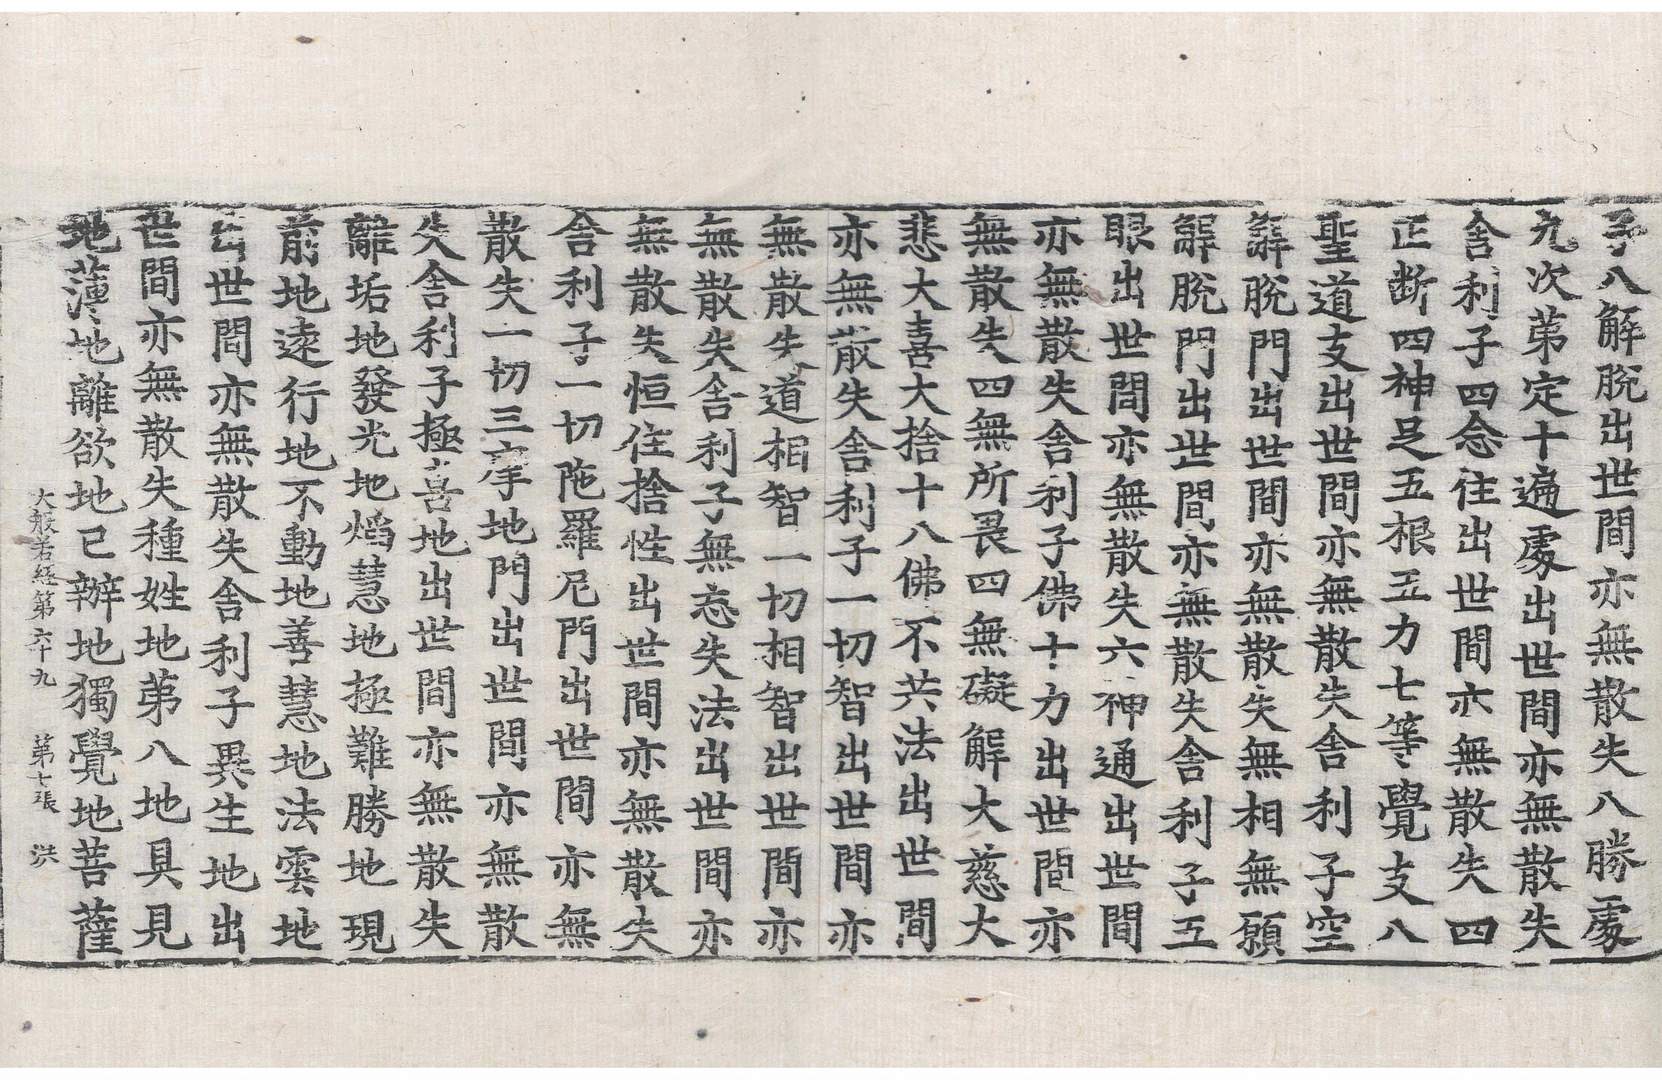 子八解脫出世間亦無散失八勝處
九次第定十遍處出世間亦無散失
舍利子四念住出世間亦無散失四
正断四神足五根五力七等覺支八
聖道支出世間亦無散失舍利子空
解脫門出世間亦無散失無相無願
解脫門出世間亦無散失舍利子五
眼出世間亦無散失六神通出世間
亦無散失舍利子佛十力出世間亦
無散失四無所畏四無礙解大慈大
悲大喜大捨十八佛不共法出世間
亦無散失舍利子一切智出世間亦
無散失道相智一切相智出世間亦
無散失舍利子無忘失法出世間亦
無散失恒住捨性出世間亦無散失
舍利子一切陁羅尼門出世間亦無
散失一切三摩地門出世間亦無散
失舍利子極喜地出世間亦無散失
離垢地發光地焰慧地極難勝地現
前地遠行地不動地善慧地法雲地
出世間亦無散失舍利子異生地出
世間亦無散失種姓地第八地具見
地薄地離欲地已辦地獨覺地菩薩
大般若經第六十九　第七張　洪